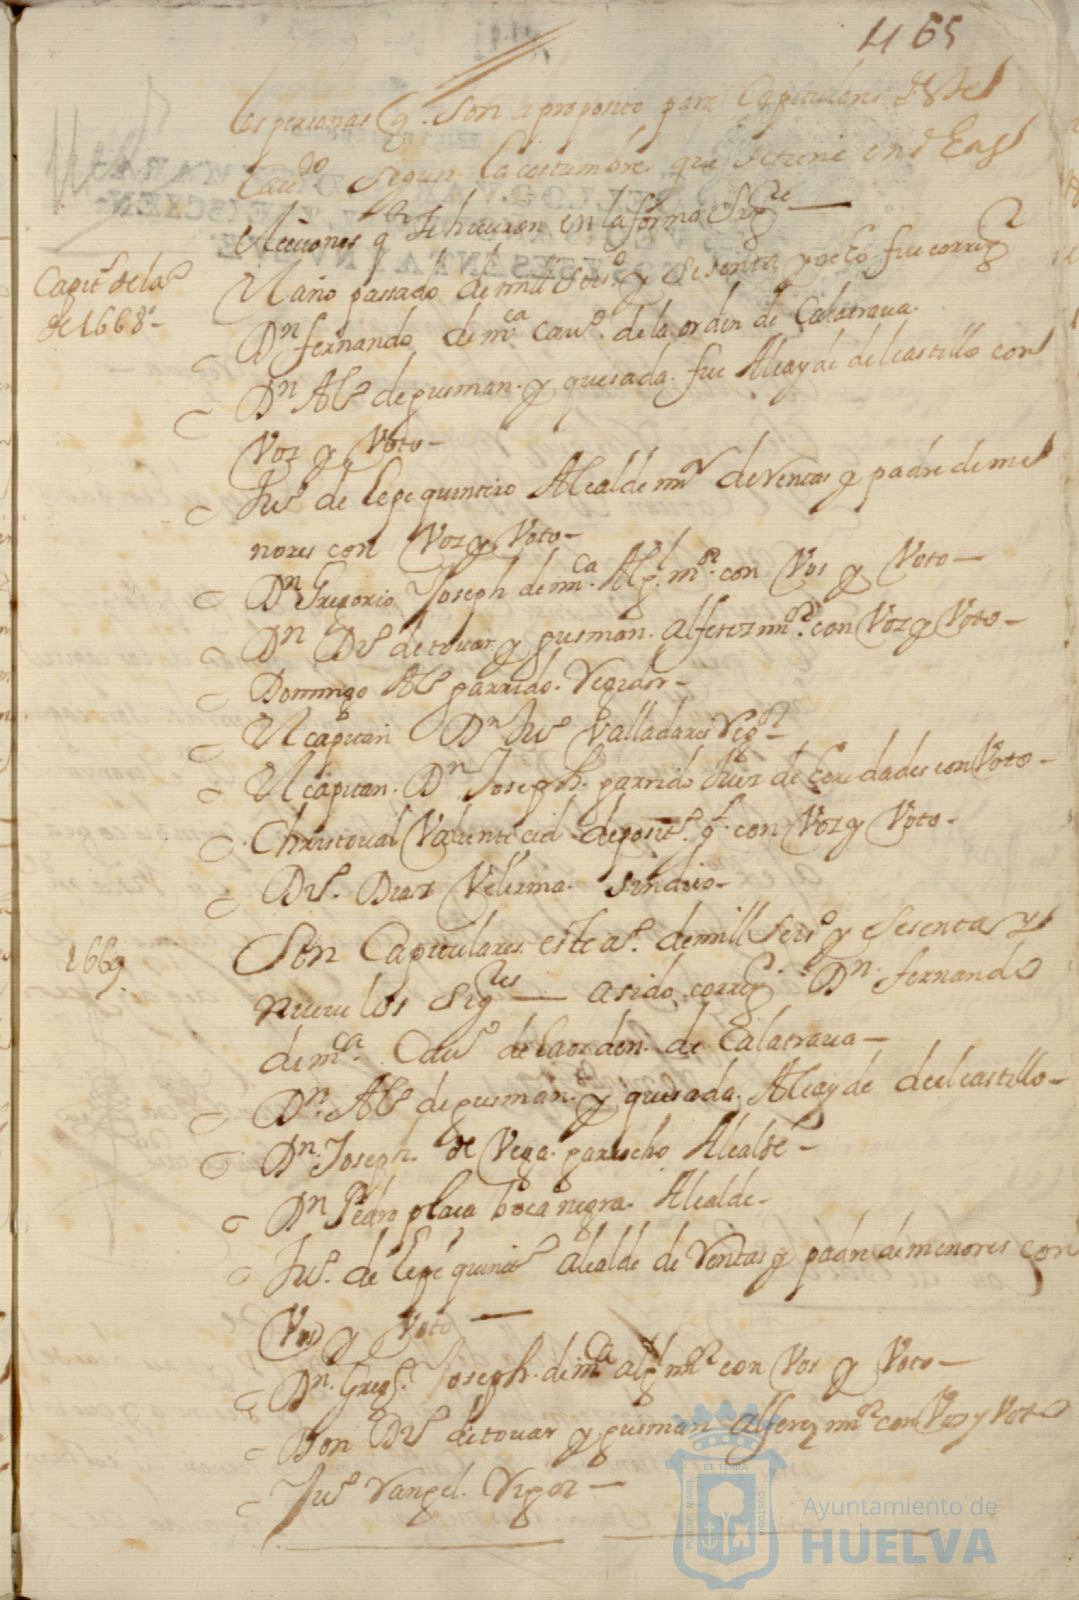 465
las personas q. son a proposito para Capitulares deste
Cavdo segun la costumbre que se tiene en d Eas
elecciones q se hicieron en la forma sigte
Capites. de la Va
de 1668 -
El año pasado de mill seiso. y sesenta y ocho fue corregr
Dn fernando de mca. Cavo. de la orden de Calatraua.
Dn Alo de gusman. y quesada. fue Alcayde del castillo con
Voz y Voto -
Juo de Lepe quintero Alcalde mr de Ventas y padre de me
nores con Voz y Voto -
Dn Gregorio Joseph de mca. Alg. mor. con Vos y Voto -
Dn Do de touar y gusman. alferez mor. con Voz y Voto -
Domingo Alo garrido. Regidor -
El capitan Dn Juo Valladares Regor -
El capitan. Dn Joseph. garrido Juez de eredades con Voto -
Christoual Valiente cid deposito. gl. con Voz y Voto -
Do. Diaz Velerma. sindico -
1669.
Son Capitulares. este ao. de mill seiso y sesenta y
nueve los sigtes — a sido corregr. Dn. fernando
de mca. Cavo de la orden. de Calatraua -
Dn. Alo de gusman. y quesada. Alcayde del castillo -
Dn. Joseph. de Vega. garrocho Alcalde -
Dn Pedro plaça bocanegra. Alcalde -
Juo. de Lepe quinto alcalde de Ventas y padre de menores con
Vos y Voto —
Dn. Grego. Joseph. de mca alg mor con Vos y Voto -
Don Do de touar y gusman alferez mor con Voz y Voto
Juo Rangel. Regor -
PORTUS MARIS ET TERRAE CUSTODIA
Ayuntamiento de
HUELVA